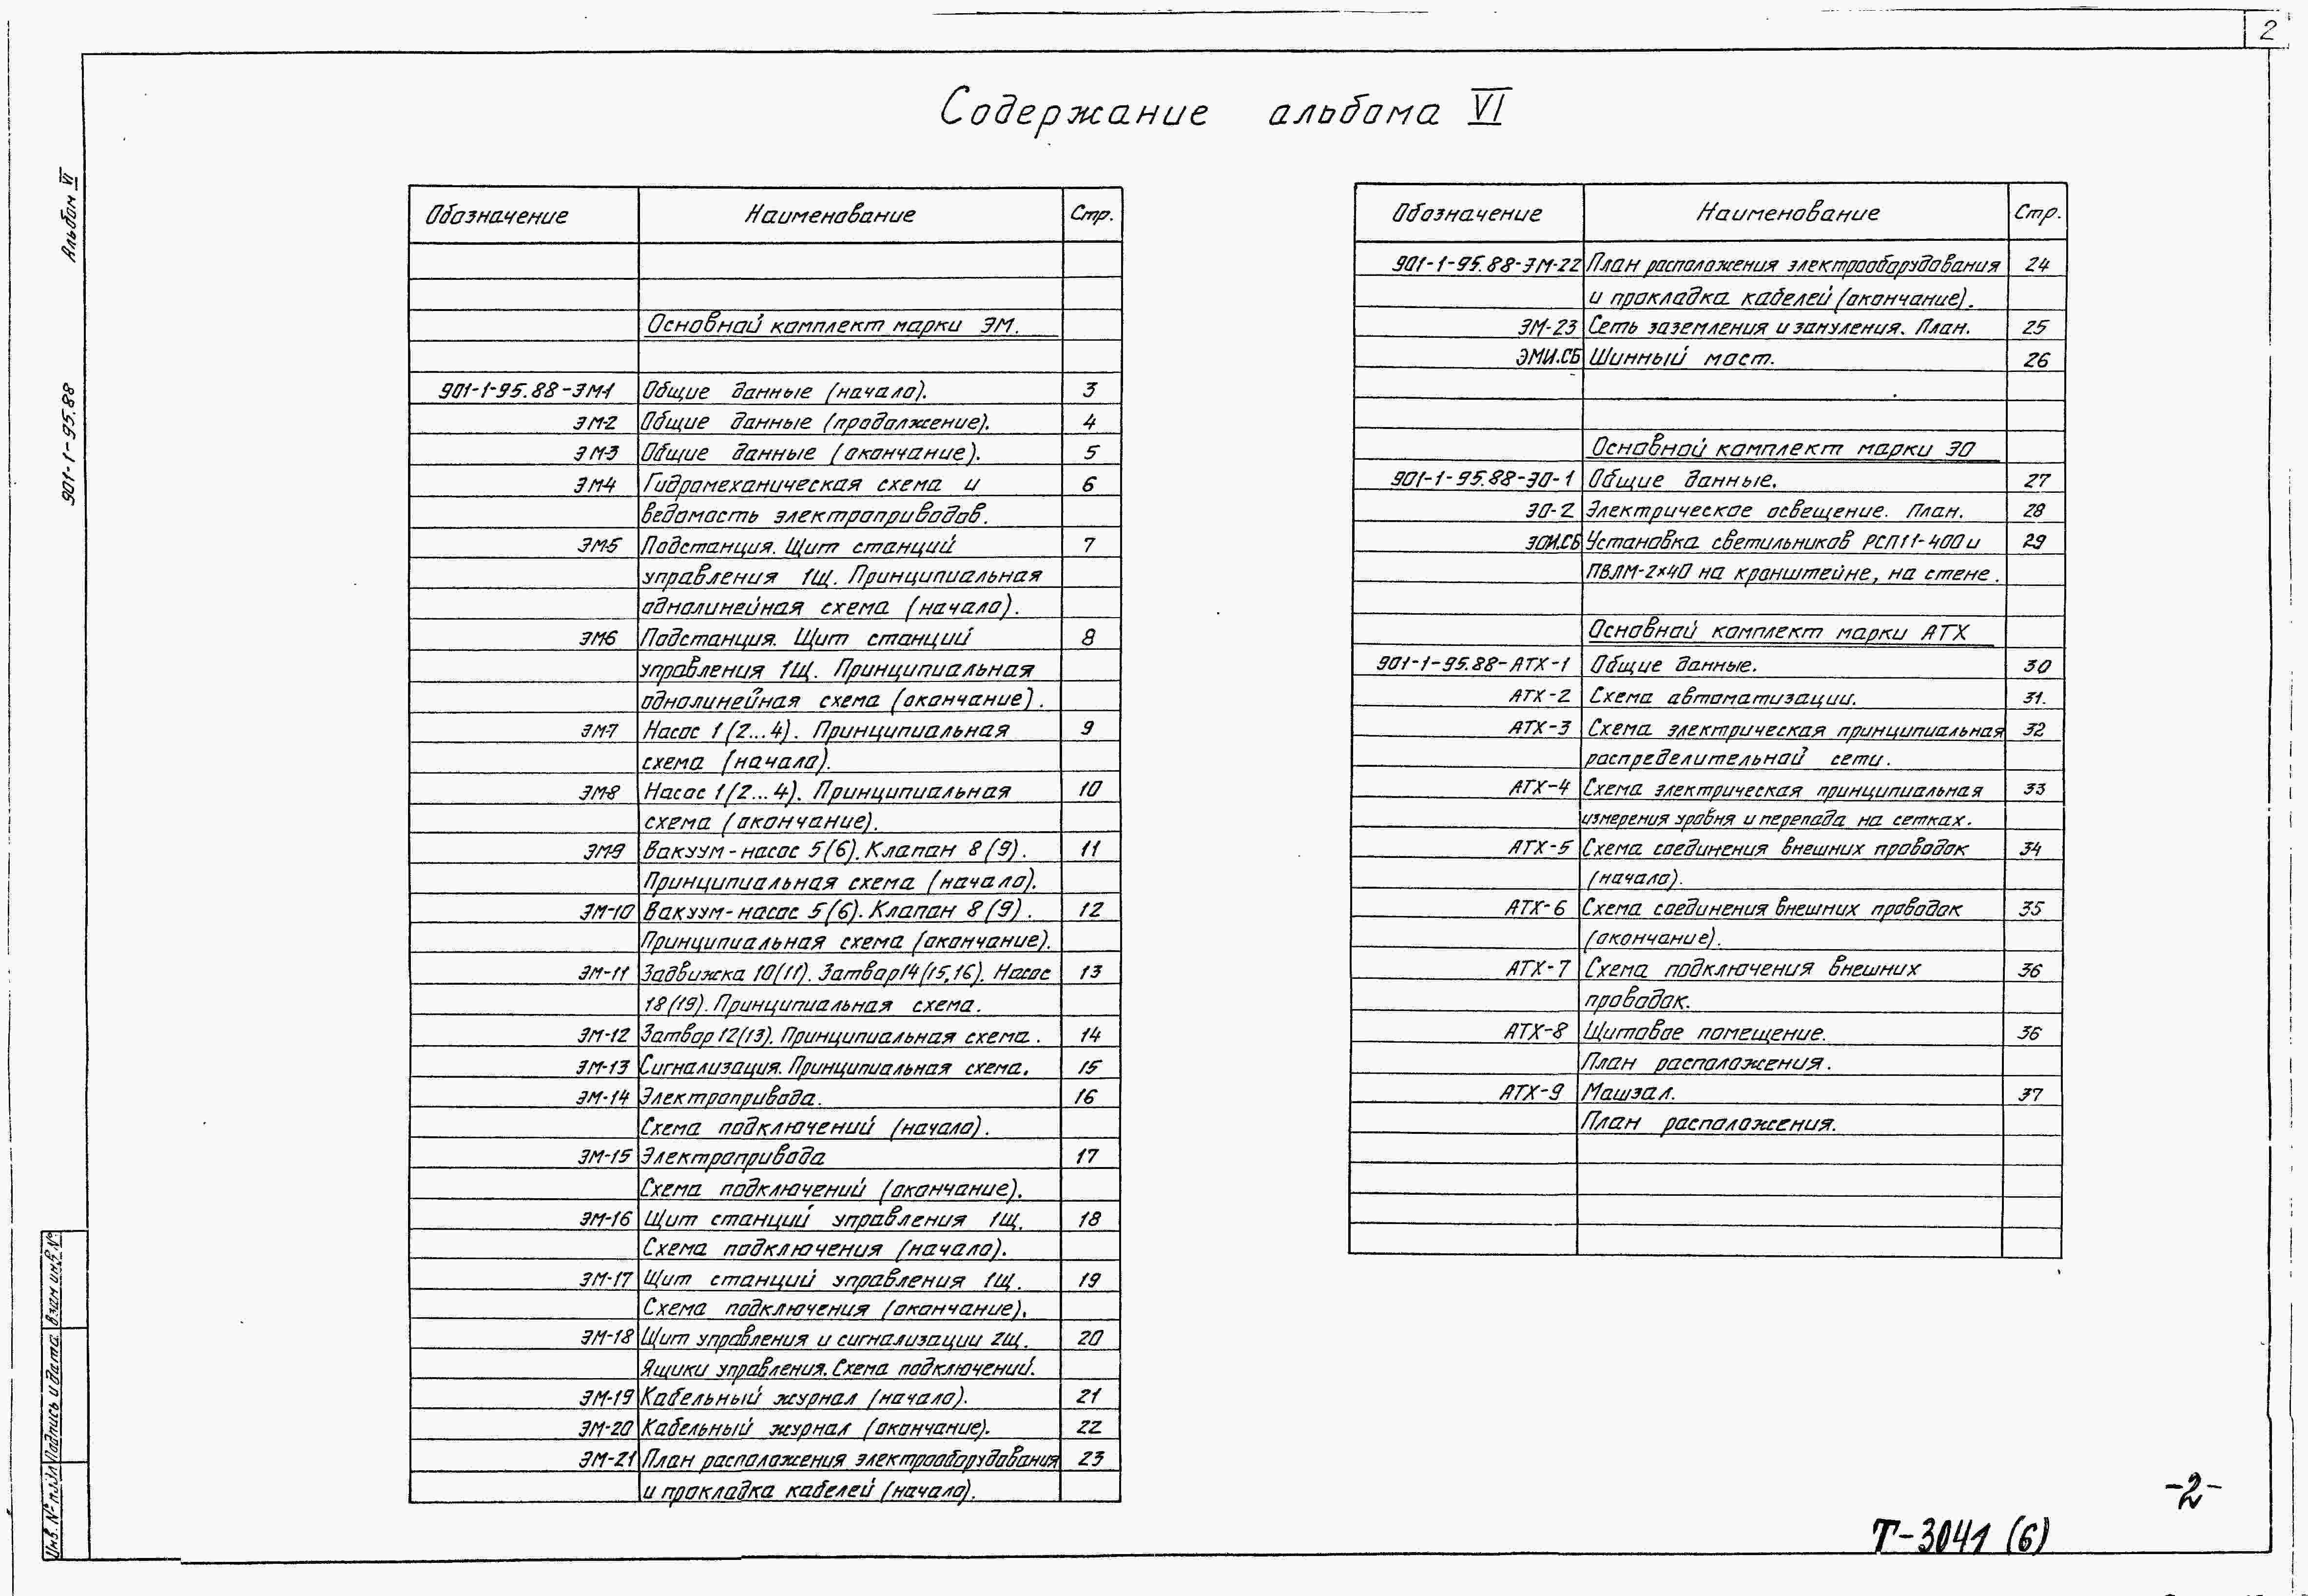 2
Содержание альбома VI
Альбом VI
901-1-95.88
Обозначение Наименование Стр.
Основной комплект марки ЭМ.
901-1-95.88-ЭМ-1 Общие данные (начало). 3
ЭМ-2 Общие данные (продолжение). 4
ЭМ-3 Общие данные (окончание). 5
ЭМ4 Гидромеханическая схема и 6
ведомость электроприводов.
ЭМ-5 Подстанция. Щит станций 7
управления 1Щ. Принципиальная
однолинейная схема (начало).
ЭМ6 Подстанция. Щит станций 8
управления 1Щ. Принципиальная
однолинейная схема (окончание).
ЭМ-7 Насос 1(2...4). Принципиальная 9
схема (начало).
ЭМ-8 Насос 1(2...4). Принципиальная 10
схема (окончание).
ЭМ-9 Вакуум-насос 5(6). Клапан 8(9). 11
Принципиальная схема (начало).
ЭМ-10 Вакуум-насос 5(6). Клапан 8(9). 12
Принципиальная схема (окончание).
ЭМ-11 Задвижка 10(11). Затвор14(15,16). Насос 13
18(19). Принципиальная схема.
ЭМ-12 Затвор 12(13). Принципиальная схема. 14
ЭМ-13 Сигнализация. Принципиальная схема. 15
ЭМ-14 Электропривода. 16
Схема подключений (начало).
ЭМ-15 Электропривода 17
Схема подключений (окончание).
ЭМ-16 Щит станций управления 1Щ. 18
Схема подключения (начало).
ЭМ-17 Щит станций управления 1Щ. 19
Схема подключения (окончание).
ЭМ-18 Щит управления и сигнализации 2Щ. 20
Ящики управления. Схема подключений.
ЭМ-19 Кабельный журнал (начало). 21
ЭМ-20 Кабельный журнал (окончание). 22
ЭМ-21 План расположения электрооборудования 23
и прокладка кабелей (начало).
Обозначение Наименование Стр.
901-1-95.88-ЭМ-22 План расположения электрооборудования 24
и прокладка кабелей (окончание).
ЭМ-23 Сеть заземления и зануления. План. 25
ЭМИ.СБ Шинный мост. 26
Основной комплект марки ЭО
901-1-95.88-ЭО-1 Общие данные. 27
ЭО-2 Электрическое освещение. План. 28
ЭОИ.СБ Установка светильников РСП11-400 и 29
ПВЛМ-2×40 на кронштейне, на стене.
Основной комплект марки АТХ
901-1-95.88-АТХ-1 Общие данные. 30
АТХ-2 Схема автоматизации. 31.
АТХ-3 Схема электрическая принципиальная 32
распределительной сети.
АТХ-4 Схема электрическая принципиальная 33
измерения уровня и перепада на сетках.
АТХ-5 Схема соединения внешних проводок 34
(начало).
АТХ-6 Схема соединения внешних проводок 35
(окончание).
АТХ-7 Схема подключения внешних 36
проводок.
АТХ-8 Щитовое помещение. 36
План расположения.
АТХ-9 Машзал. 37
План расположения.
Инв. № подл Подпись и дата Взам инв.№
-2-
Т-3041 (6)